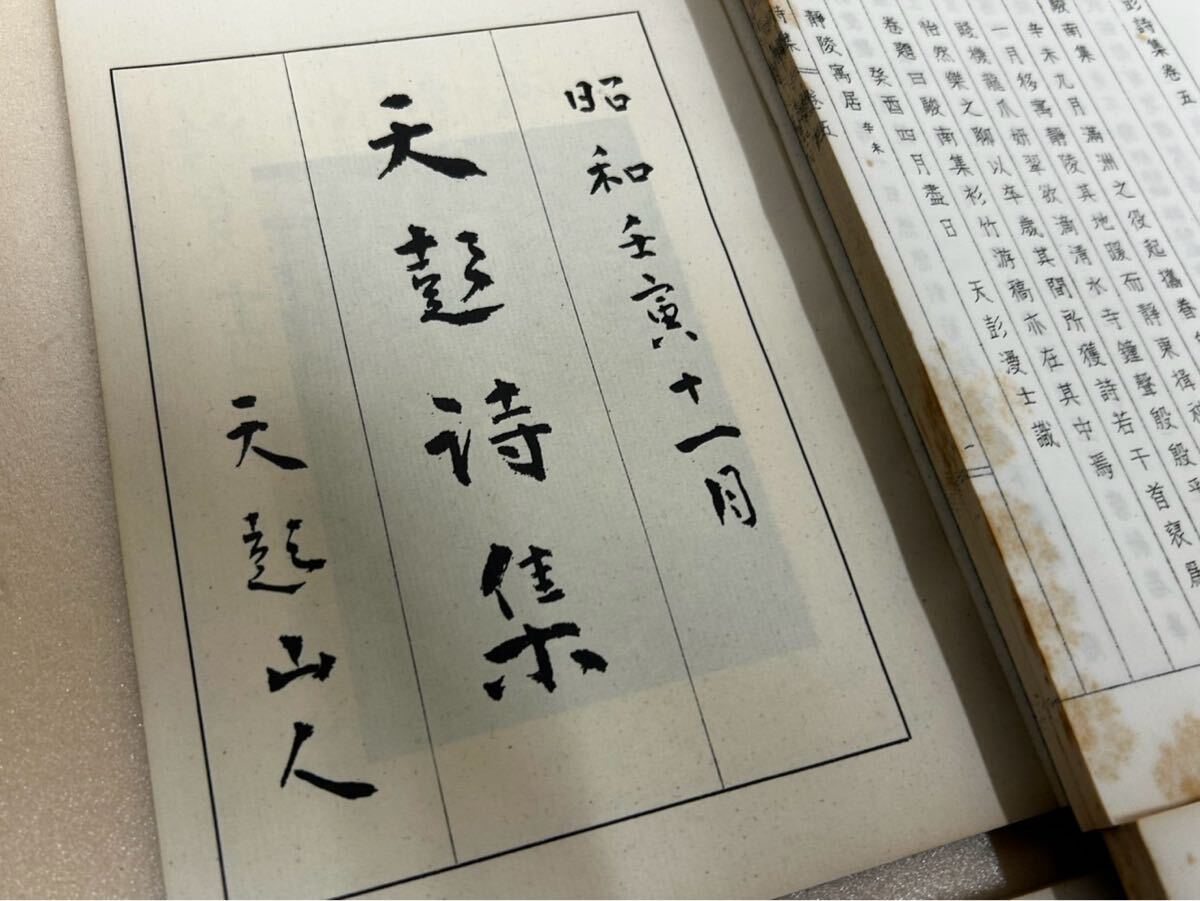 昭和壬寅十一月
天彭詩集
天彭山人
彭詩集卷五
駿南集
辛未九月滿洲之役起攜眷
一月移寓靜陵其地暖而靜東揖
機龍爪妍翠欲滴清水寺鐘聲殷殷乎
怡然樂之聊以卒歲其間所獲詩若干首裒爲
卷題曰駿南集杉竹游稿亦在其中焉
癸酉四月盡日 天彭漫士識
靜陵寓居 辛未
詩集 卷五 一